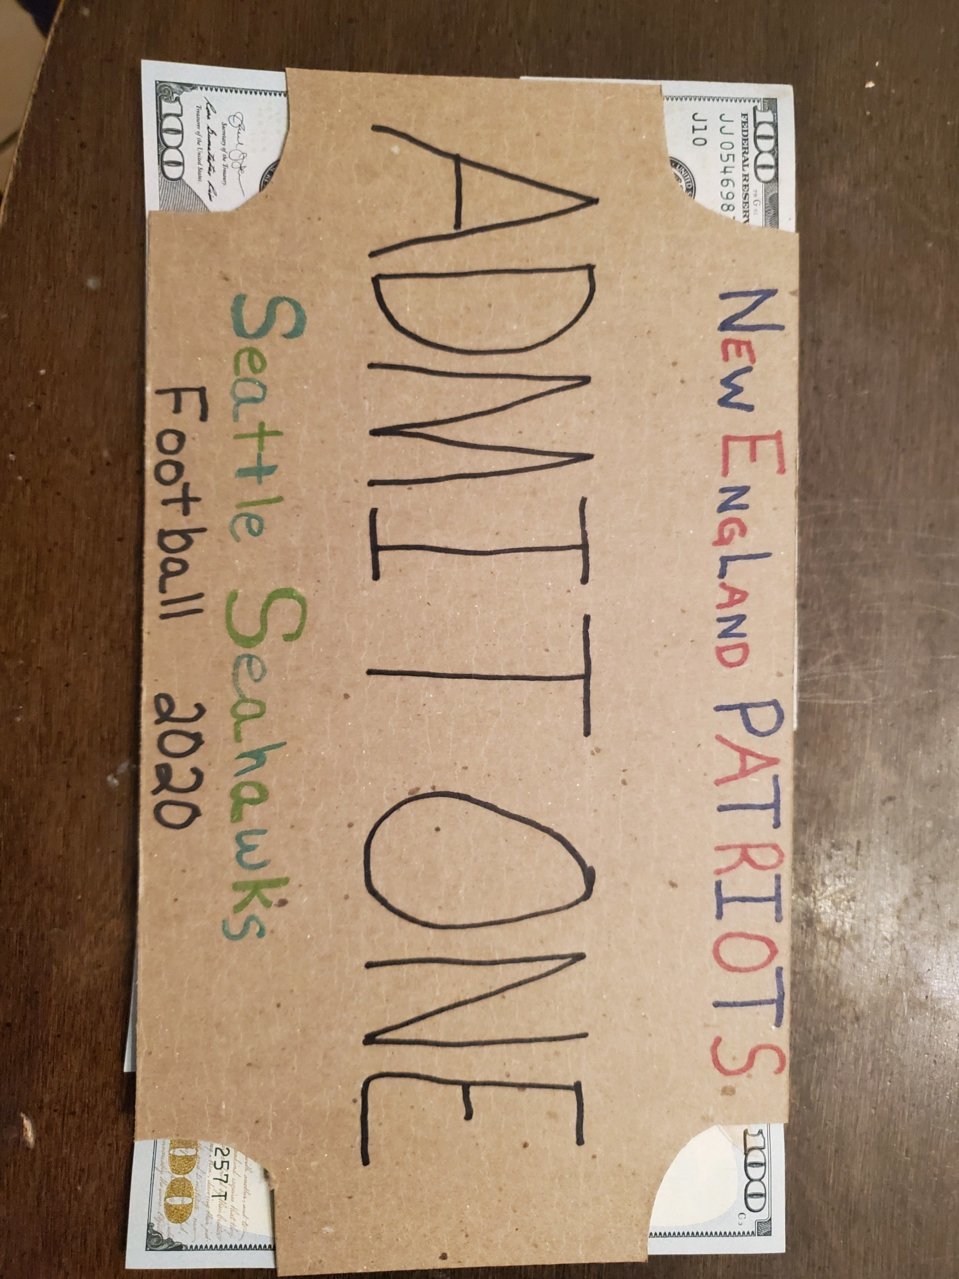 NEW ENGLAND PATRIOTS
ADMIT ONE
Seattle Seahawks
Football 2020
100
FEDERAL RESERV
JJ054698
J10
UNITED
100
Secretary of the Treasury
Treasurer of the United States
100
257T
100